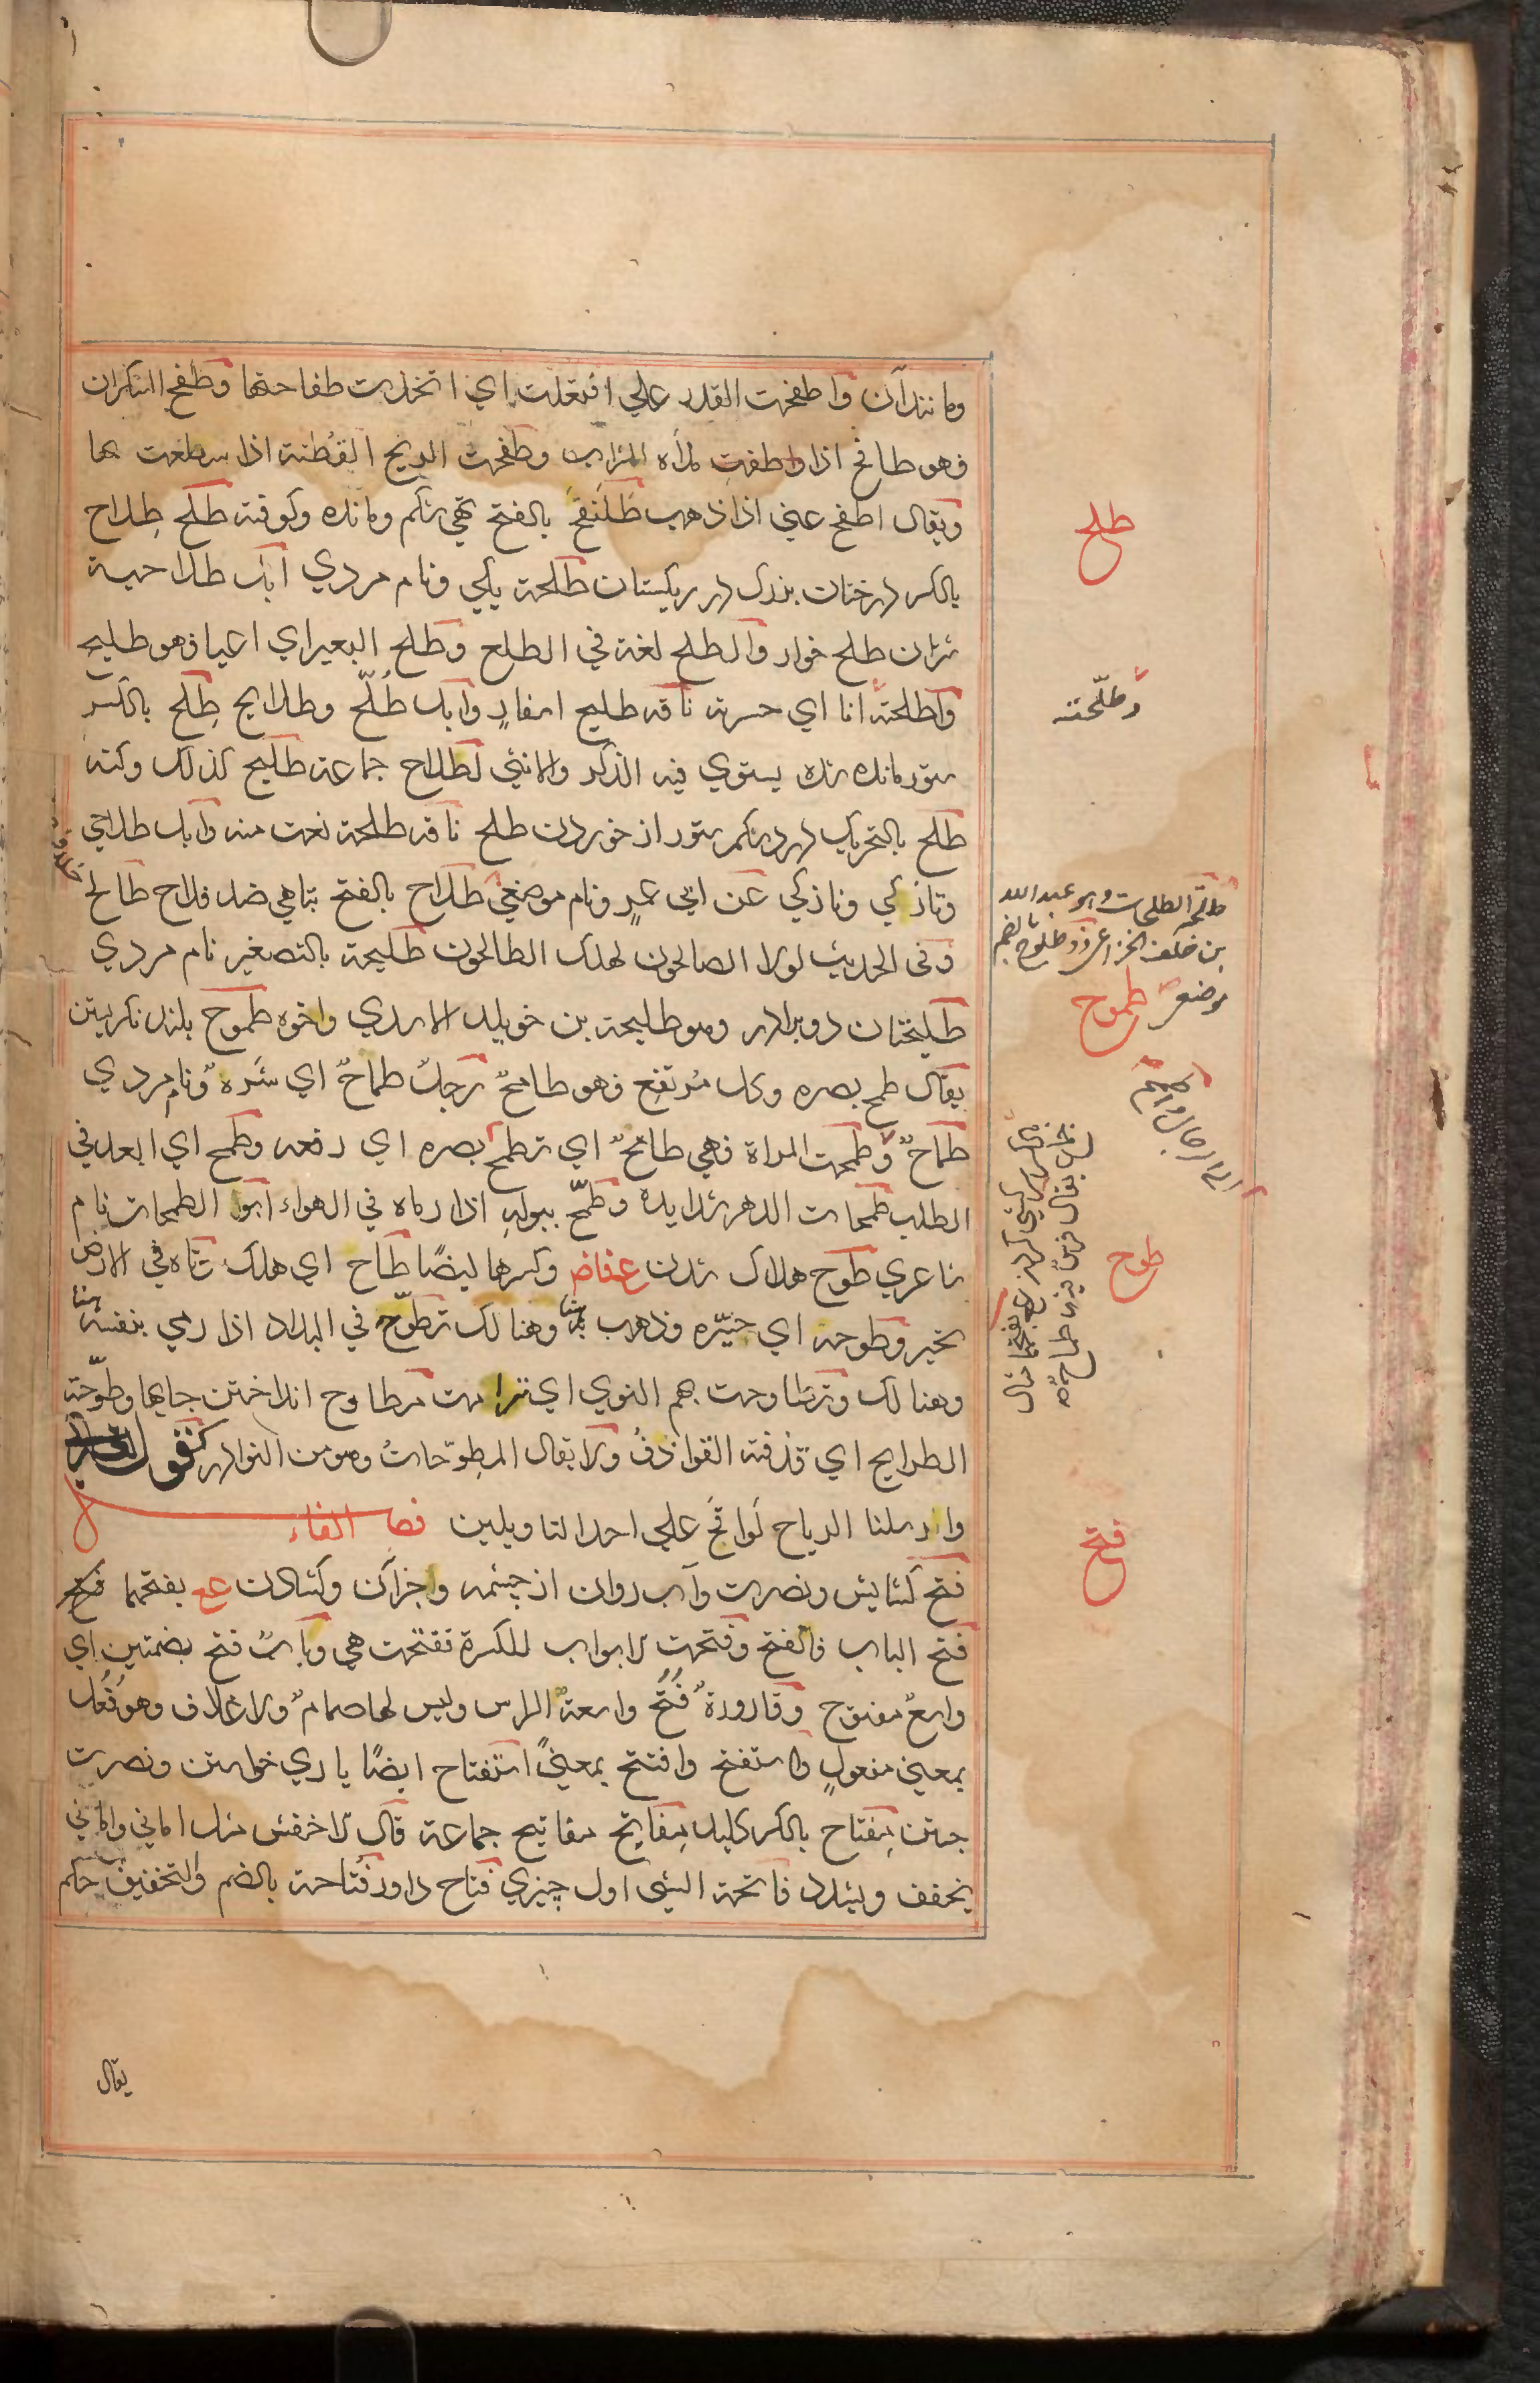 ومانندآن واطفحت القدر علي افتعلت اي اتخذت طفاحتها وطفح السكران
فهو طافح اذا ملأه الشراب وطفحت الريح القطنة اذا سطعت بها
ويقال اطفح عني اذا ذهب طلنفح بالفتح تهي شكم ومانده وكوفته طلح طِلاح
بالكسر درختان بزرك در ريكستان طلحة يكي ونام مردي ابل طلاحية
شتران طلح خوار والطلح لغة في الطلع وطلح البعير اي اعيا فهو طليح
واطلحته انا اي حسرته ناقة طليح اسفارٍ وابل طُلّح وطلايح طِلح بالكسر
ستور مانده شده يستوي فيه الذكر والانثي اطلاح جماعة طليح كذلك وكنه
طلح بالتحريك درد شكم ستور از خوردن طلح ناقة طلحة نعت منه وابل طلاحي
وتازكي ونازكي عن ابي عمرٍ ونام موضعي طلاح بالفتح تباهي ضد فلاح طالح
وفي الحديث لولا الصالحون لهلك الطالحون طليحة بالتصغير نام مردي
طليحتان دو برادر وهو طليحة بن خويلد الاسدي واخوه طموح بلند نكريستن
يقال طمح بصره وكل مُرتفِع فهو طامحٌ رجلٌ طماحٌ اي شَرِه ونام مردي
طماحٌ وطمحت المراة فهي طامحٌ اي تطمح بصره اي رفعه وطمح اي ابعد في
الطلب طمحات الدهر شدايده وطمّح ببوله اذا رماه في الهواء ابو الطمحات نام
شاعري طوح هلاك شدن عفاض وكسرها ايضًا طاح اي هلك تاه في الارض
تحير وطوحه اي حيّره وذهب به هنا وهنالك تطوّح في البلاد اذا رمي بنفسه هنا
وهنالك وتطاوحت بهم النوي اي ترامت مطاوح انداختن جايها وطوّحته
الطوايح اي قذفته القواذف ولا يقال المطوّحات وهو من النوادر كقوله
وارسلنا الرياح لَواقحَ علي احد التاويلين فصل الفاء
فتح كشايش ونصرت وآب روان از چشمه وجزآن وكشادن عع بفتحهما فتح
فتح الباب فانفتح وفتحت الابواب للكسرة فتفتحت هي وبابٌ فتح بضمتين اي
واسعٌ مفتوح وقارورة فُتُح واسعة الراس وليس لها صمامٌ ولا غلاف وهو فُعُل
بمعني مفعولٍ واستفتح وافتتح بمعنيً استفتاح ايضًا ياري خواستن ونصرت
جستن مِفتاح بالكسر كليد مفاتح مفاتيح جماعة قال الاخفش مثل اماني واماني
يخفف ويشدد فاتحة الشئ اول چيزي فتاح داور فُتاحة بالضم والتخفيف حكم
طلح
وطلّحته
طلحة الطلحات وهو عبد الله
بن خلف الخزاعي وذو طلوح بالضم
موضع طموح
طوح
فتح
يقال